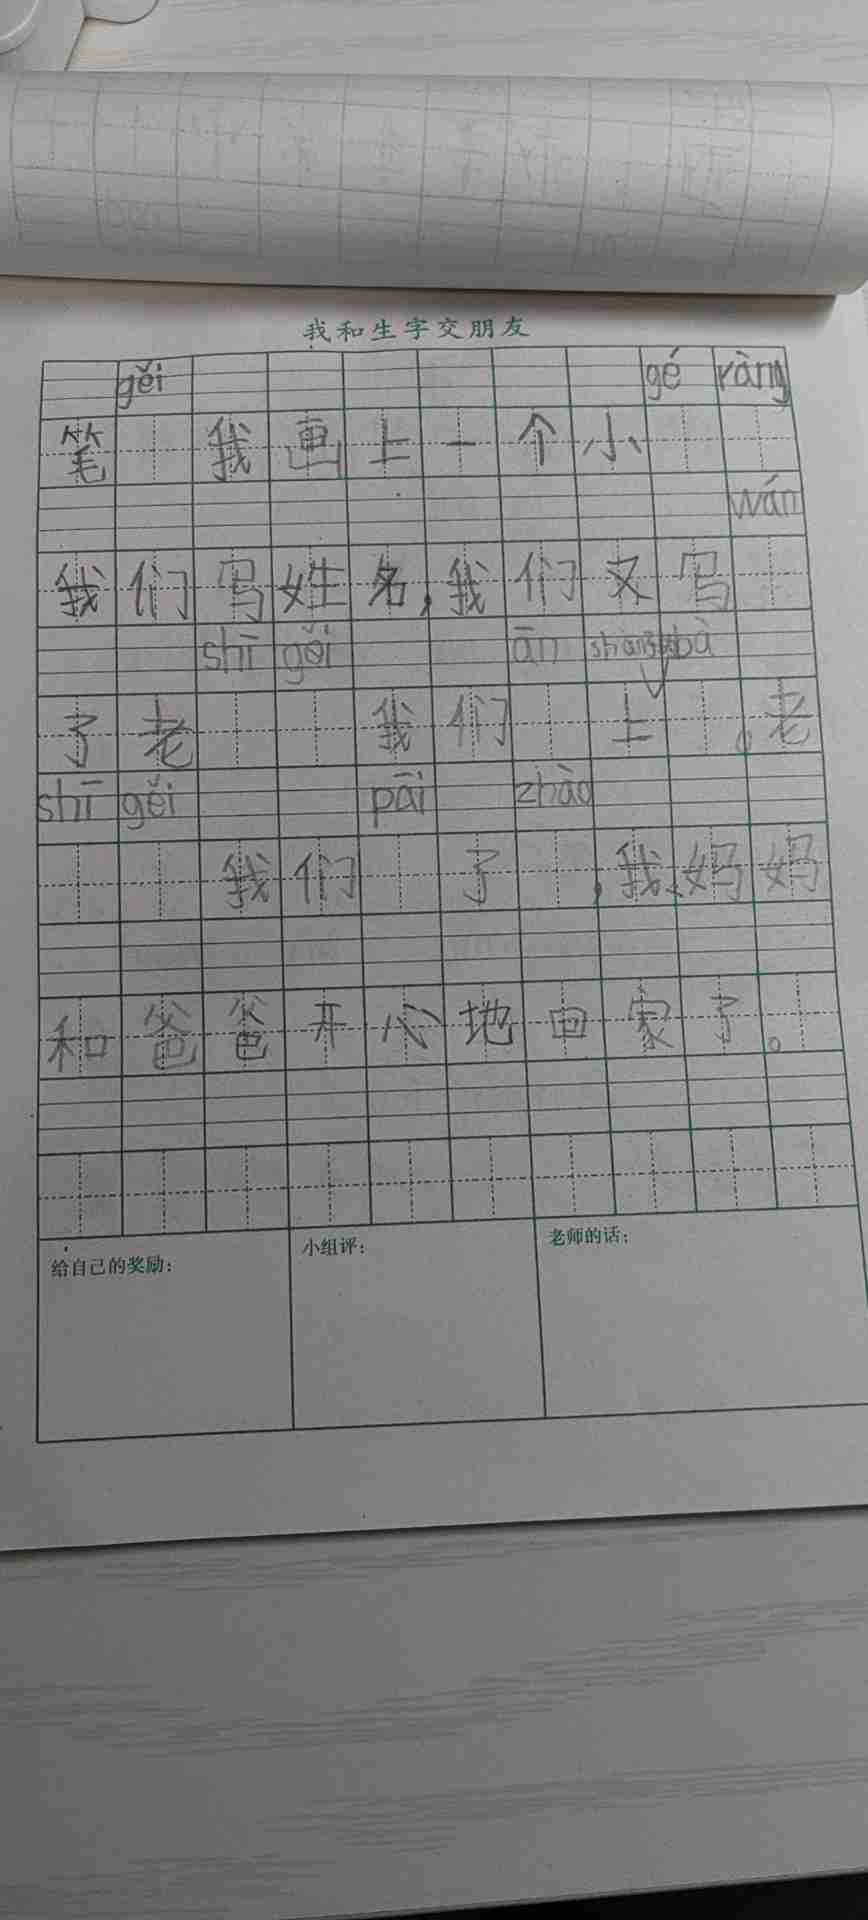 我和生字交朋友
gěi gé ràng
笔 我画上一个小
wán
我们写姓名,我们又写
shī gěi àn shang bà
了老 我们 上 。老
shī gěi pāi zhào
我们 了 ,我、妈妈
和爸爸开心地回家了。
给自己的奖励:
小组评:
老师的话: